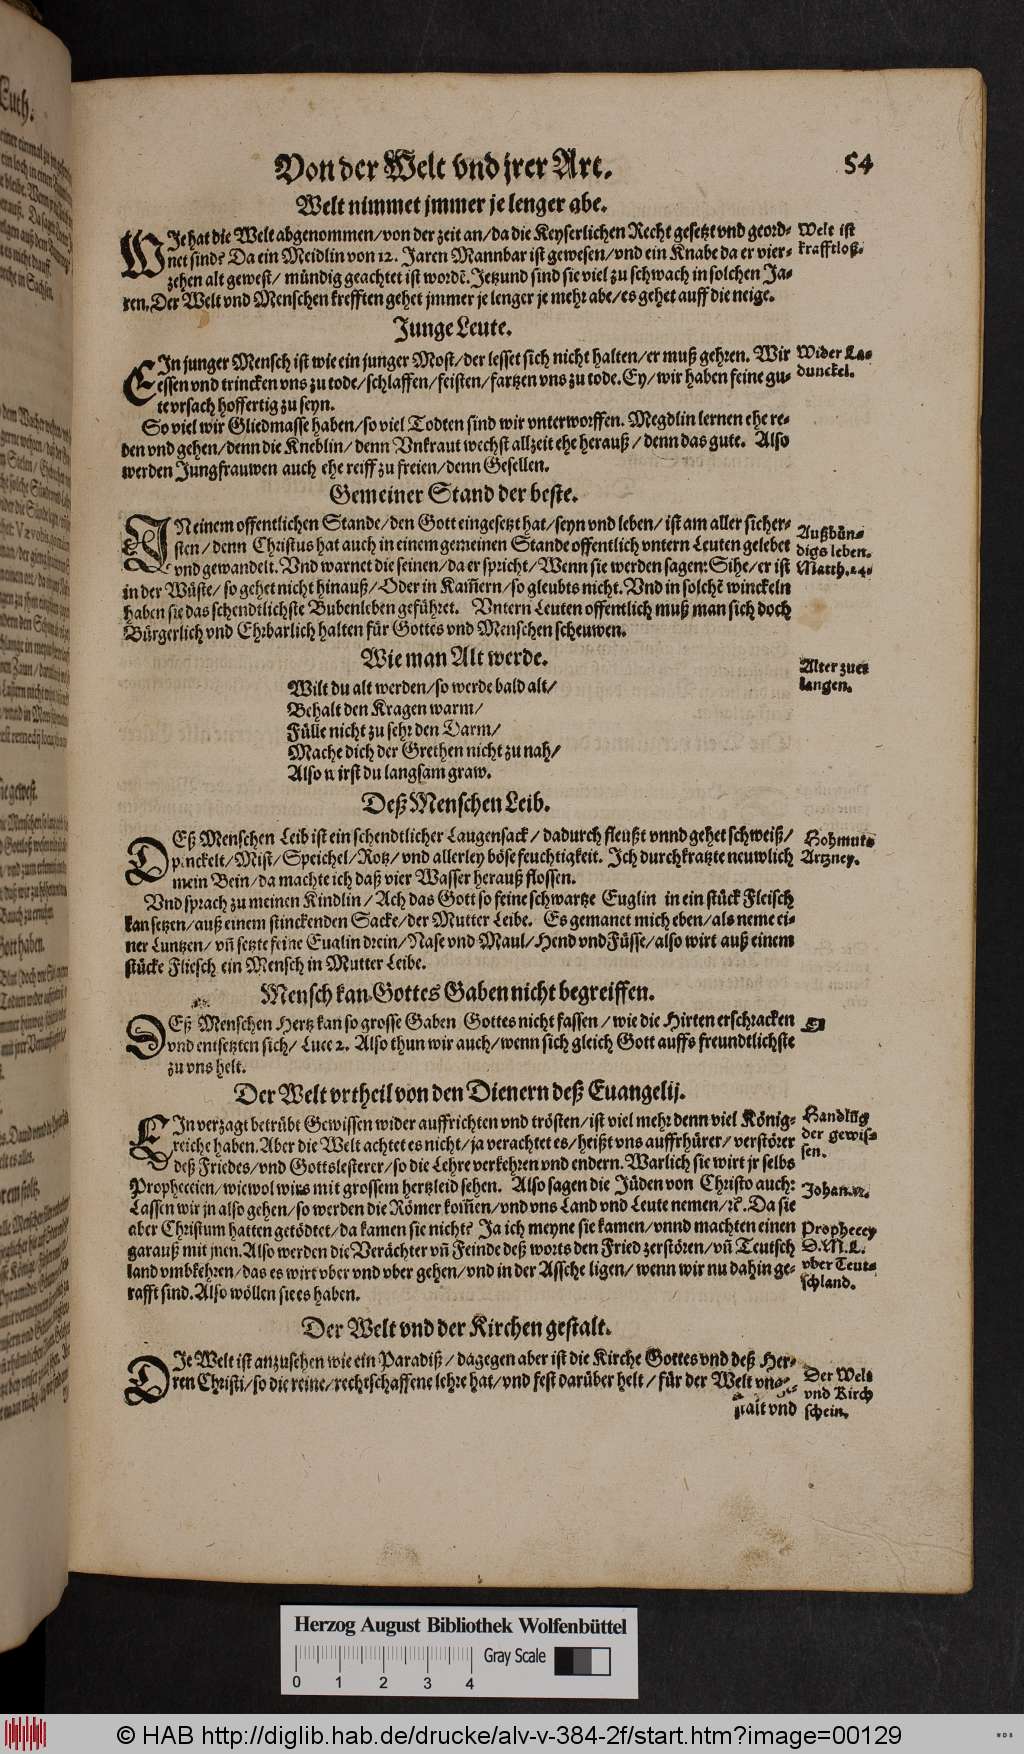 Von der Welt vnd jrer Art. 54
Welt nimmet jmmer je lenger abe.
WIe hat die Welt abgenommen/von der zeit an/da die Keyserlichen Recht gesetzt vnd geord-
net sind? Da ein Meidlin von 12. Jaren Mannbar ist gewesen/vnd ein Knabe da er vier-
zehen alt gewest/ mündig geachtet ist wordē. Jetzund sind sie viel zu schwach in solchen Ja-
ren. Der Welt vnd Menschen krefften gehet jmmer je lenger je mehr abe/es gehet auff die neige.
Welt ist
krafftloß.
Junge Leute.
EIn junger Mensch ist wie ein junger Most/der lesset sich nicht halten/er muß gehren. Wir
essen vnd trincken vns zu tode/schlaffen/feisten/fartzen vns zu tode. Ey/wir haben feine gu-
te vrsach hoffertig zu seyn.
Wider La-
dunckel.
So viel wir Gliedmasse haben/so viel Todten sind wir vnterworffen. Megdlin lernen ehe re-
den vnd gehen/denn die Kneblin/ denn Vnkraut wechst allzeit ehe herauß/ denn das gute. Also
werden Jungfrauwen auch ehe reiff zu freien/denn Gesellen.
Gemeiner Stand der beste.
IN einem offentlichen Stande/den Gott eingesetzt hat/seyn vnd leben/ ist am aller sicher-
sten/ denn Christus hat auch in einem gemeinen Stande offentlich vntern Leuten gelebet
vnd gewandelt. Vnd warnet die seinen/da er spricht/Wenn sie werden sagen: Sihe/er ist
in der Wüste/ so gehet nicht hinauß/ Oder in Kam̄ern/so gleubts nicht. Vnd in solchē winckeln
haben sie das schendtlichste Bubenleben geführet. Vntern Leuten offentlich muß man sich doch
Bürgerlich vnd Ehrbarlich halten für Gottes vnd Menschen scheuwen.
Außbün-
digs leben.
Matth. 24.
Wie man Alt werde.
Wilt du alt werden/so werde bald alt/
Behalt den Kragen warm/
Fülle nicht zu sehr den Darm/
Mache dich der Grethen nicht zu nah/
Also wirst du langsam graw.
Alter zuer
langen.
Deß Menschen Leib.
DEß Menschen Leib ist ein schendtlicher Laugensack/ dadurch fleußt vnnd gehet schweiß/
pinckelt/Mist/Speichel/Rotz/ vnd allerley böse feuchtigkeit. Ich durchkratzte neuwlich
mein Bein/da machte ich daß vier Wasser herauß flossen.
Hohmuts
Artzney.
Vnd sprach zu meinen Kindlin/ Ach das Gott so feine schwartze Euglin in ein stück Fleisch
kan setzen/auß einem stinckenden Sacke/der Mutter Leibe. Es gemanet mich eben/als neme ei-
ner Luntzen/ vn̄ setzte feine Euglin drein/Nase vnd Maul/Hend vnd Füsse/also wirt auß einem
stücke Fliesch ein Mensch in Mutter Leibe.
Mensch kan Gottes Gaben nicht begreiffen.
DEß Menschen Hertz kan so grosse Gaben Gottes nicht fassen/ wie die Hirten erschracken
vnd entsetzten sich/ Luce 2. Also thun wir auch/wenn sich gleich Gott auffs freundtlichste
zu vns helt.
Der Welt vrtheil von den Dienern deß Euangelij.
EIn verzagt betrübt Gewissen wider auffrichten vnd trösten/ist viel mehr denn viel König-
reiche haben. Aber die Welt achtet es nicht/ja verachtet es/heißt vns auffrhürer/ verstörer
deß Friedes/vnd Gottslesterer/so die Lehre verkehren vnd endern. Warlich sie wirt jr selbs
Propheceien/wiewol wirs mit grossem hertzleid sehen. Also sagen die Jüden von Christo auch:
Lassen wir jn also gehen/so werden die Römer kom̄en/vnd vns Land vnd Leute nemen/ꝛc̄. Da sie
aber Christum hatten getödtet/da kamen sie nicht? Ja ich meyne sie kamen/vnnd machten einen
garauß mit jnen. Also werden die Verächter vn̄ Feinde deß worts den Fried zerstören/vn̄ Teutsch
land vmbkehren/das es wirt vber vnd vber gehen/vnd in der Assche ligen/wenn wir nu dahin ge-
rafft sind. Also wöllen sie es haben.
Handlūg
der gewis-
sen.
Johan. 11.
Prophecey
D. M. L.
vber Teut-
schland.
Der Welt vnd der Kirchen gestalt.
DIe Welt ist anzusehen wie ein Paradiß/ dagegen aber ist die Kirche Gottes vnd deß Her-
ren Christi/so die reine/rechtschaffene lehre hat/vnd fest darüber helt/ für der Welt vnge-
stalt vnd
Der Welt
vnd Kirch
schein.
Herzog August Bibliothek Wolfenbüttel
Gray Scale
0 1 2 3 4
© HAB http://diglib.hab.de/drucke/alv-v-384-2f/start.htm?image=00129